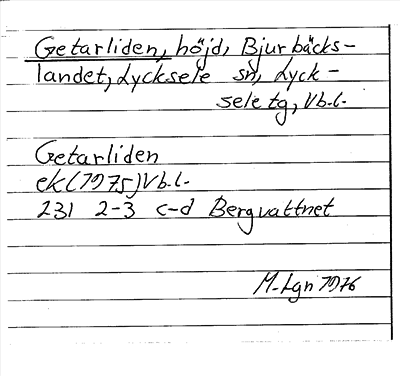 Getarliden, höjd, Bjurbäcks-
landet, Lycksele sn, Lyck-
sele tg, Vb.l.
Getarliden
ek (1975) Vb.l.
231 2-3 c-d Bergvattnet
M. Lgn 1976